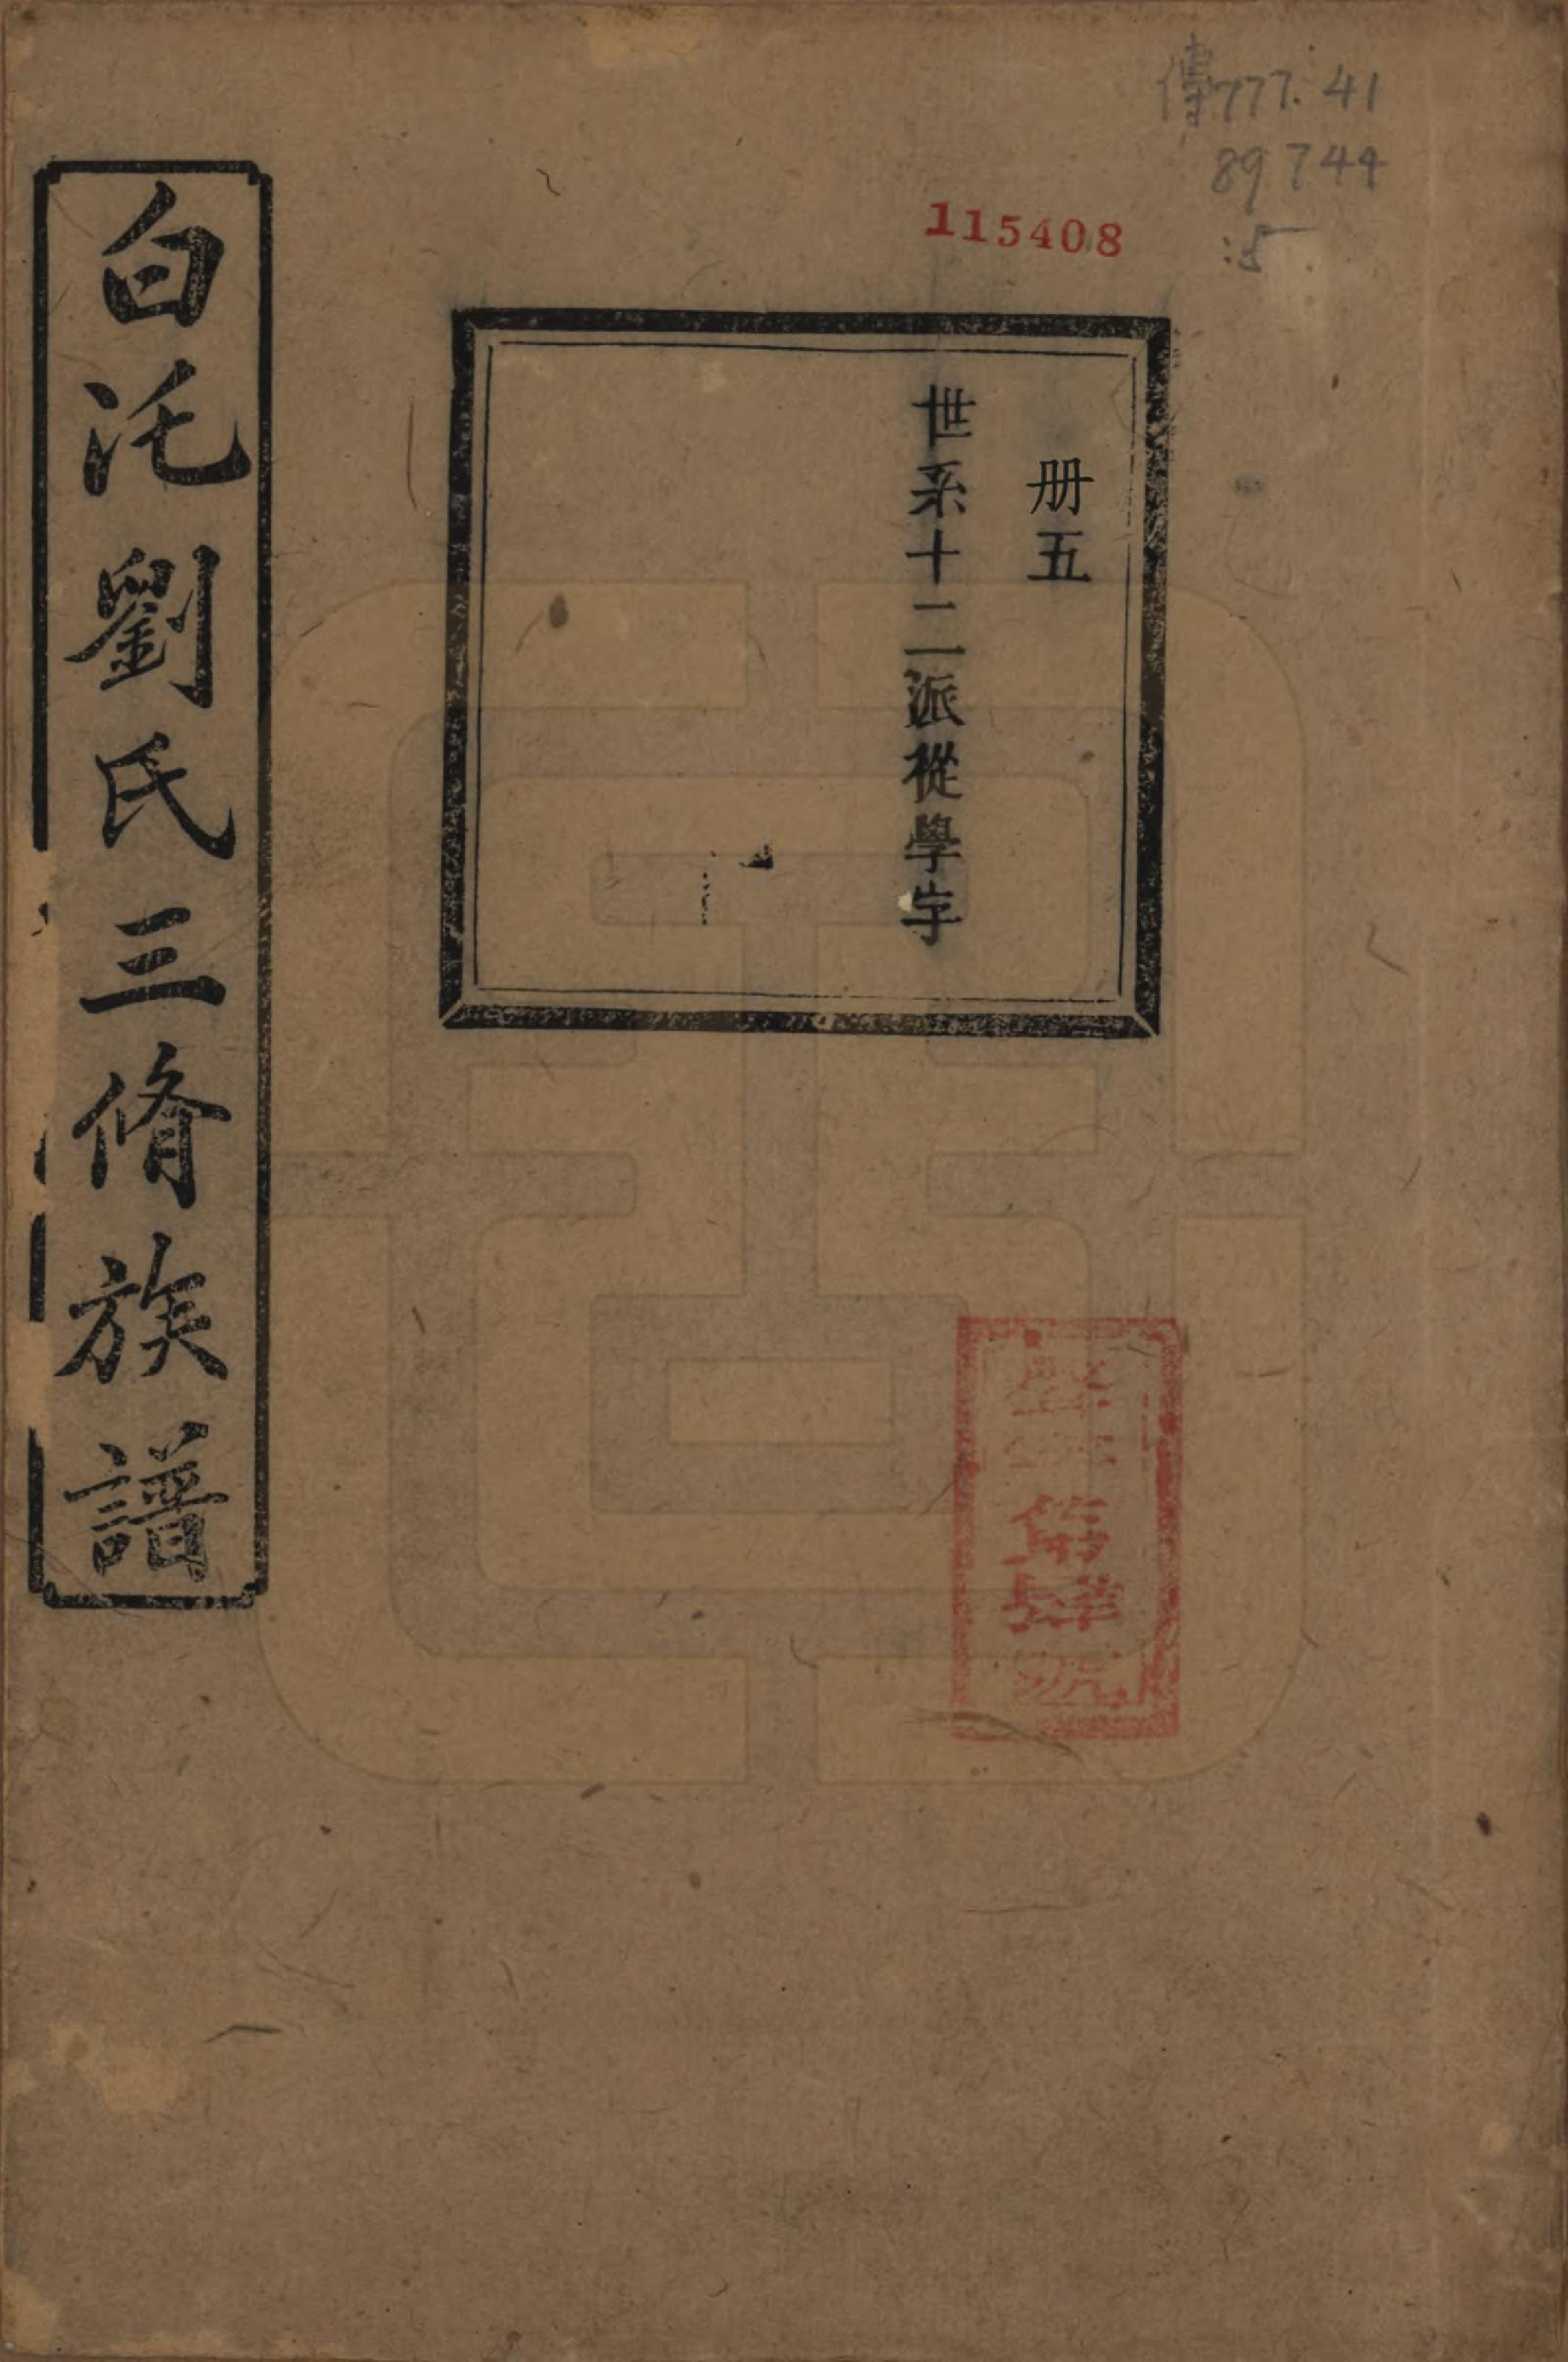 傳777.41
89744
:5
115408
册五
世系十二派從學字
白汑劉氏三脩族譜
第肆號